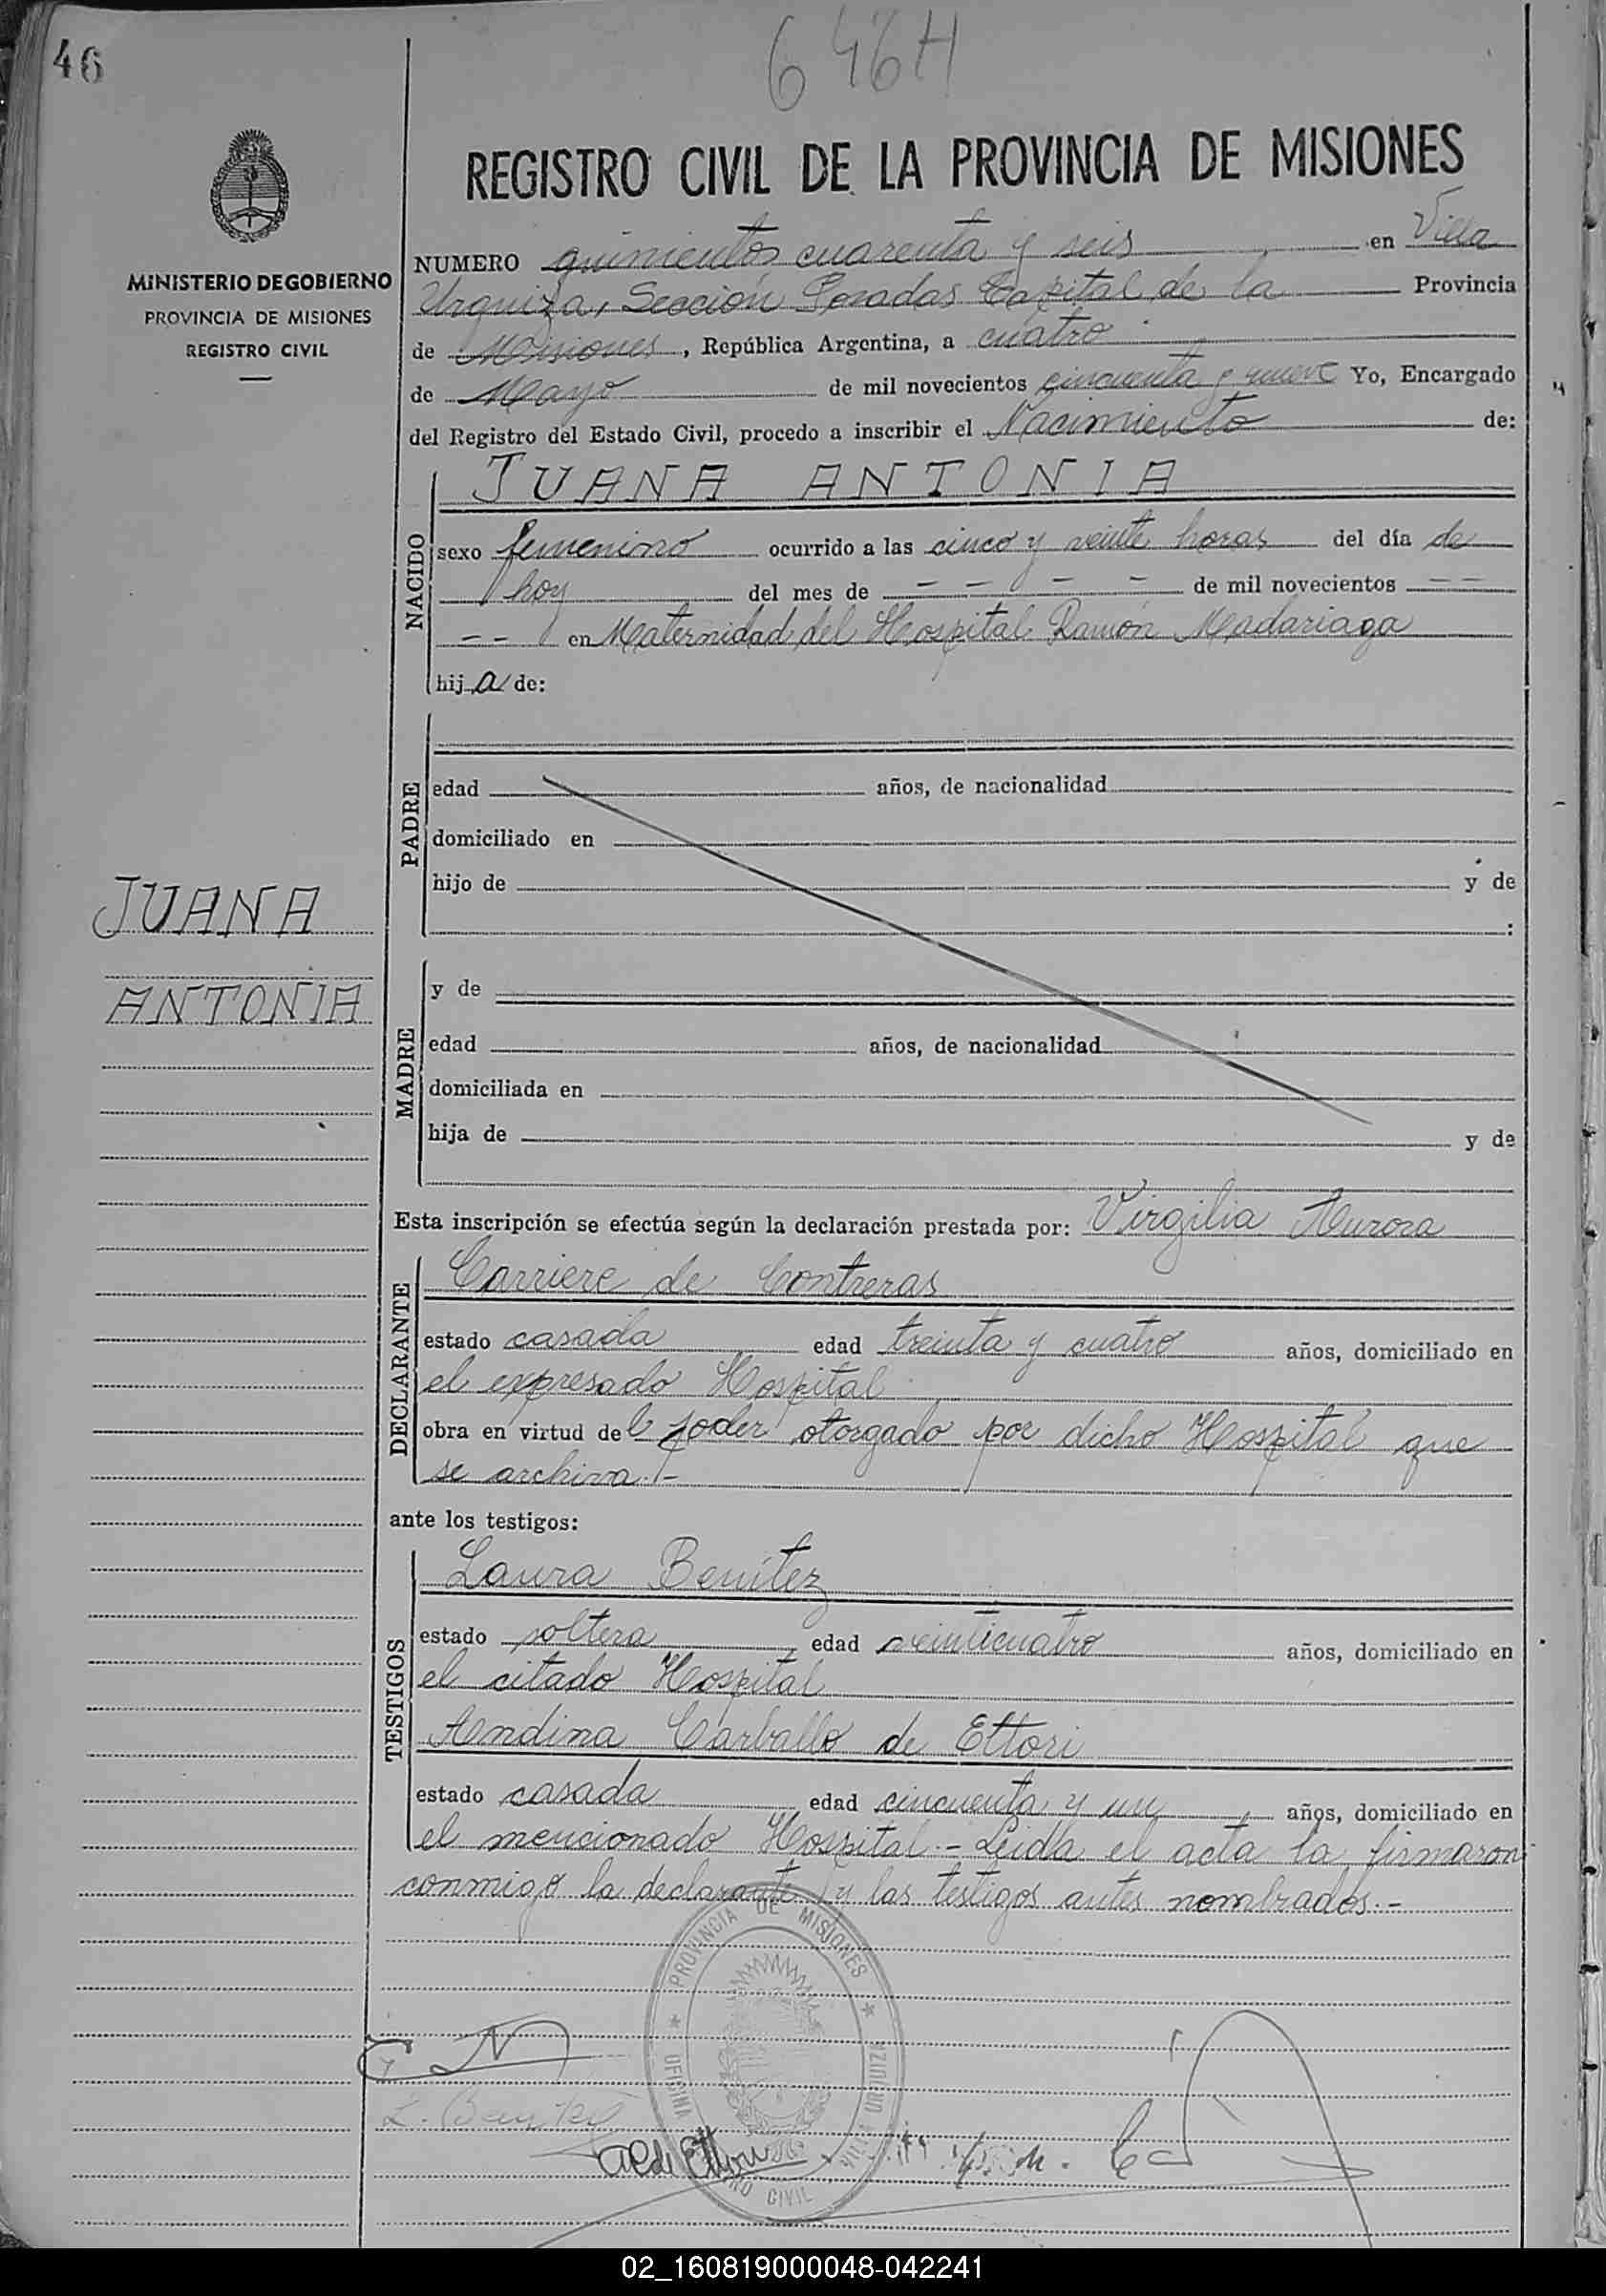 46
646H
REGISTRO CIVIL DE LA PROVINCIA DE MISIONES
MINISTERIO DE GOBIERNO
PROVINCIA DE MISIONES
REGISTRO CIVIL
NUMERO quinientos cuarenta y seis en Villa
Urquiza, Sección Posadas Capital de la Provincia
de Misiones, República Argentina, a cuatro
de Mayo de mil novecientos cincuenta y nueve Yo, Encargado
del Registro del Estado Civil, procedo a inscribir el Nacimiento de:
NACIDO
JUANA ANTONIA
sexo femenino ocurrido a las cinco y veinte horas del día de
hoy del mes de - - - - de mil novecientos - -
- - en Maternidad del Hospital Ramón Madariaga
hij a de:
PADRE
edad años, de nacionalidad
domiciliado en
hijo de y de
:
JUANA
ANTONIA
MADRE
y de
edad años, de nacionalidad
domiciliada en
hija de y de
Esta inscripción se efectúa según la declaración prestada por: Virgilia Aurora
DECLARANTE
Carriere de Contreras
estado casada edad treinta y cuatro años, domiciliado en
el expresado Hospital
obra en virtud del poder otorgado por dicho Hospital que
se archiva.-
ante los testigos:
TESTIGOS
Laura Benítez
estado soltera edad veinticuatro años, domiciliado en
el citado Hospital
Andina Carballo de Ettori
estado casada edad cincuenta y un años, domiciliado en
el mencionado Hospital.- Leída el acta la firmaron
conmigo la declarante y las testigos antes nombrados.-
PROVINCIA DE MISIONES
OFICINA
VILLA URQUIZA
CIVIL
L. Benítez
02_160819000048-042241